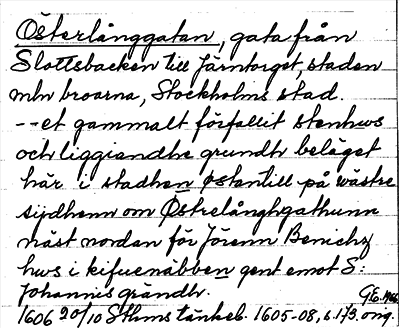 Österlånggatan, gata från
Slottsbacken till Järntorget, staden
mln broarna, Stockholms stad.
--et gammalt förfallit stenhws
och liggiandhe grundh beläget
här i stadhen östentill på wästre
sijdhenn om Östrelånghgathunn
näst nordan för Jörenn Benichz
hws i kifuenäbben gent emot S:
Johannis grändh.
1606 20/10 Sthms tänkeb. 1605-08, s. 173. orig.